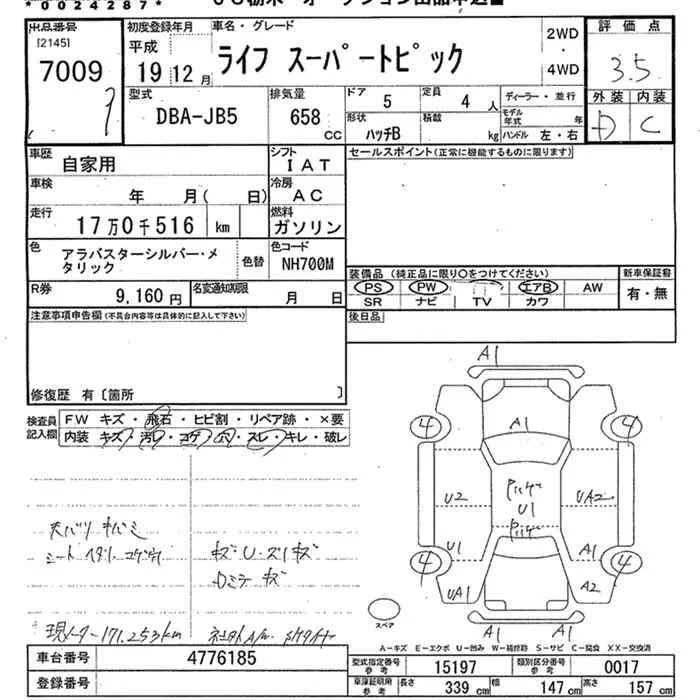 * 0 0 2 4 2 8 7 *
出品番号
[21451
7009
初度登録年月
平成
19 12 月
車名・グレード
ライフ スーパートピック
2WD
・
4WD
評価点
3.5
外装 内装
D C
型式
DBA-JB5
排気量
658 CC
ドア
5
定員
4 人
形状
ハッチB
積載
kg
ディーラー・並行
モデル年式 年
ハンドル 左・右
車歴
自家用
シフト
IAT
車検
年 月( 日)
冷房
AC
走行
17万0千516 km
燃料
ガソリン
色
アラバスターシルバー・メタリック
色替
色コード
NH700M
R券
9,160 円
名変通知期限
月 日
セールスポイント(正常に機能するものに限ります)
装備品(純正品に限り○をつけてください)
PS PW エアB AW
SR ナビ TV カワ
新車保証書
有・無
後日品
注意事項申告欄(不具合内容等は具体的に記入して下さい)
修復歴 有〔箇所 〕
検査員記入欄
FW キズ・飛石・ヒビ割・リペア跡・×要
内装 キズ・汚レ・コゲ・穴・スレ・キレ・破レ
現メーター171.253km
A1
4 A1 4
U2 U1 UA2
U1 A1
4 4
UA1 A2
A1 A1
スペア
A-キズ E-エクボ U-凹み W-補修跡 S-サビ C-腐食 XX-交換済
車台番号
4776185
登録番号
型式指定番号 参考
15197
類別区分番号 参考
0017
車庫証明用 参考
長さ 339 cm 幅 147 cm 高さ 157 cm